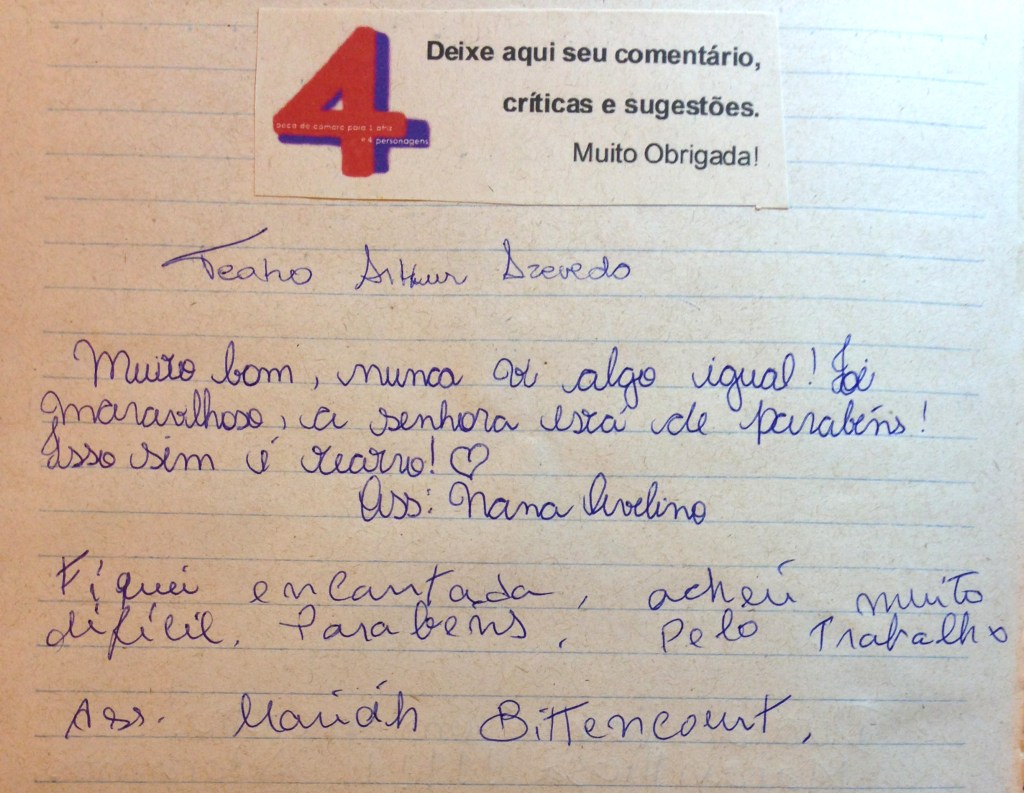 Deixe aqui seu comentário,
críticas e sugestões.
Muito Obrigada!
4
peça de câmara para 1 atriz
+ 4 personagens
Teatro Arthur Azevedo
Muito bom, nunca vi algo igual! Foi
maravilhoso, a senhora está de parabéns!
Isso sim é teatro! ♡
Ass: Nana Avelino
Fiquei encantada, achei muito
difícil. Parabéns, pelo Trabalho
Ass. Mariáh Bittencourt,